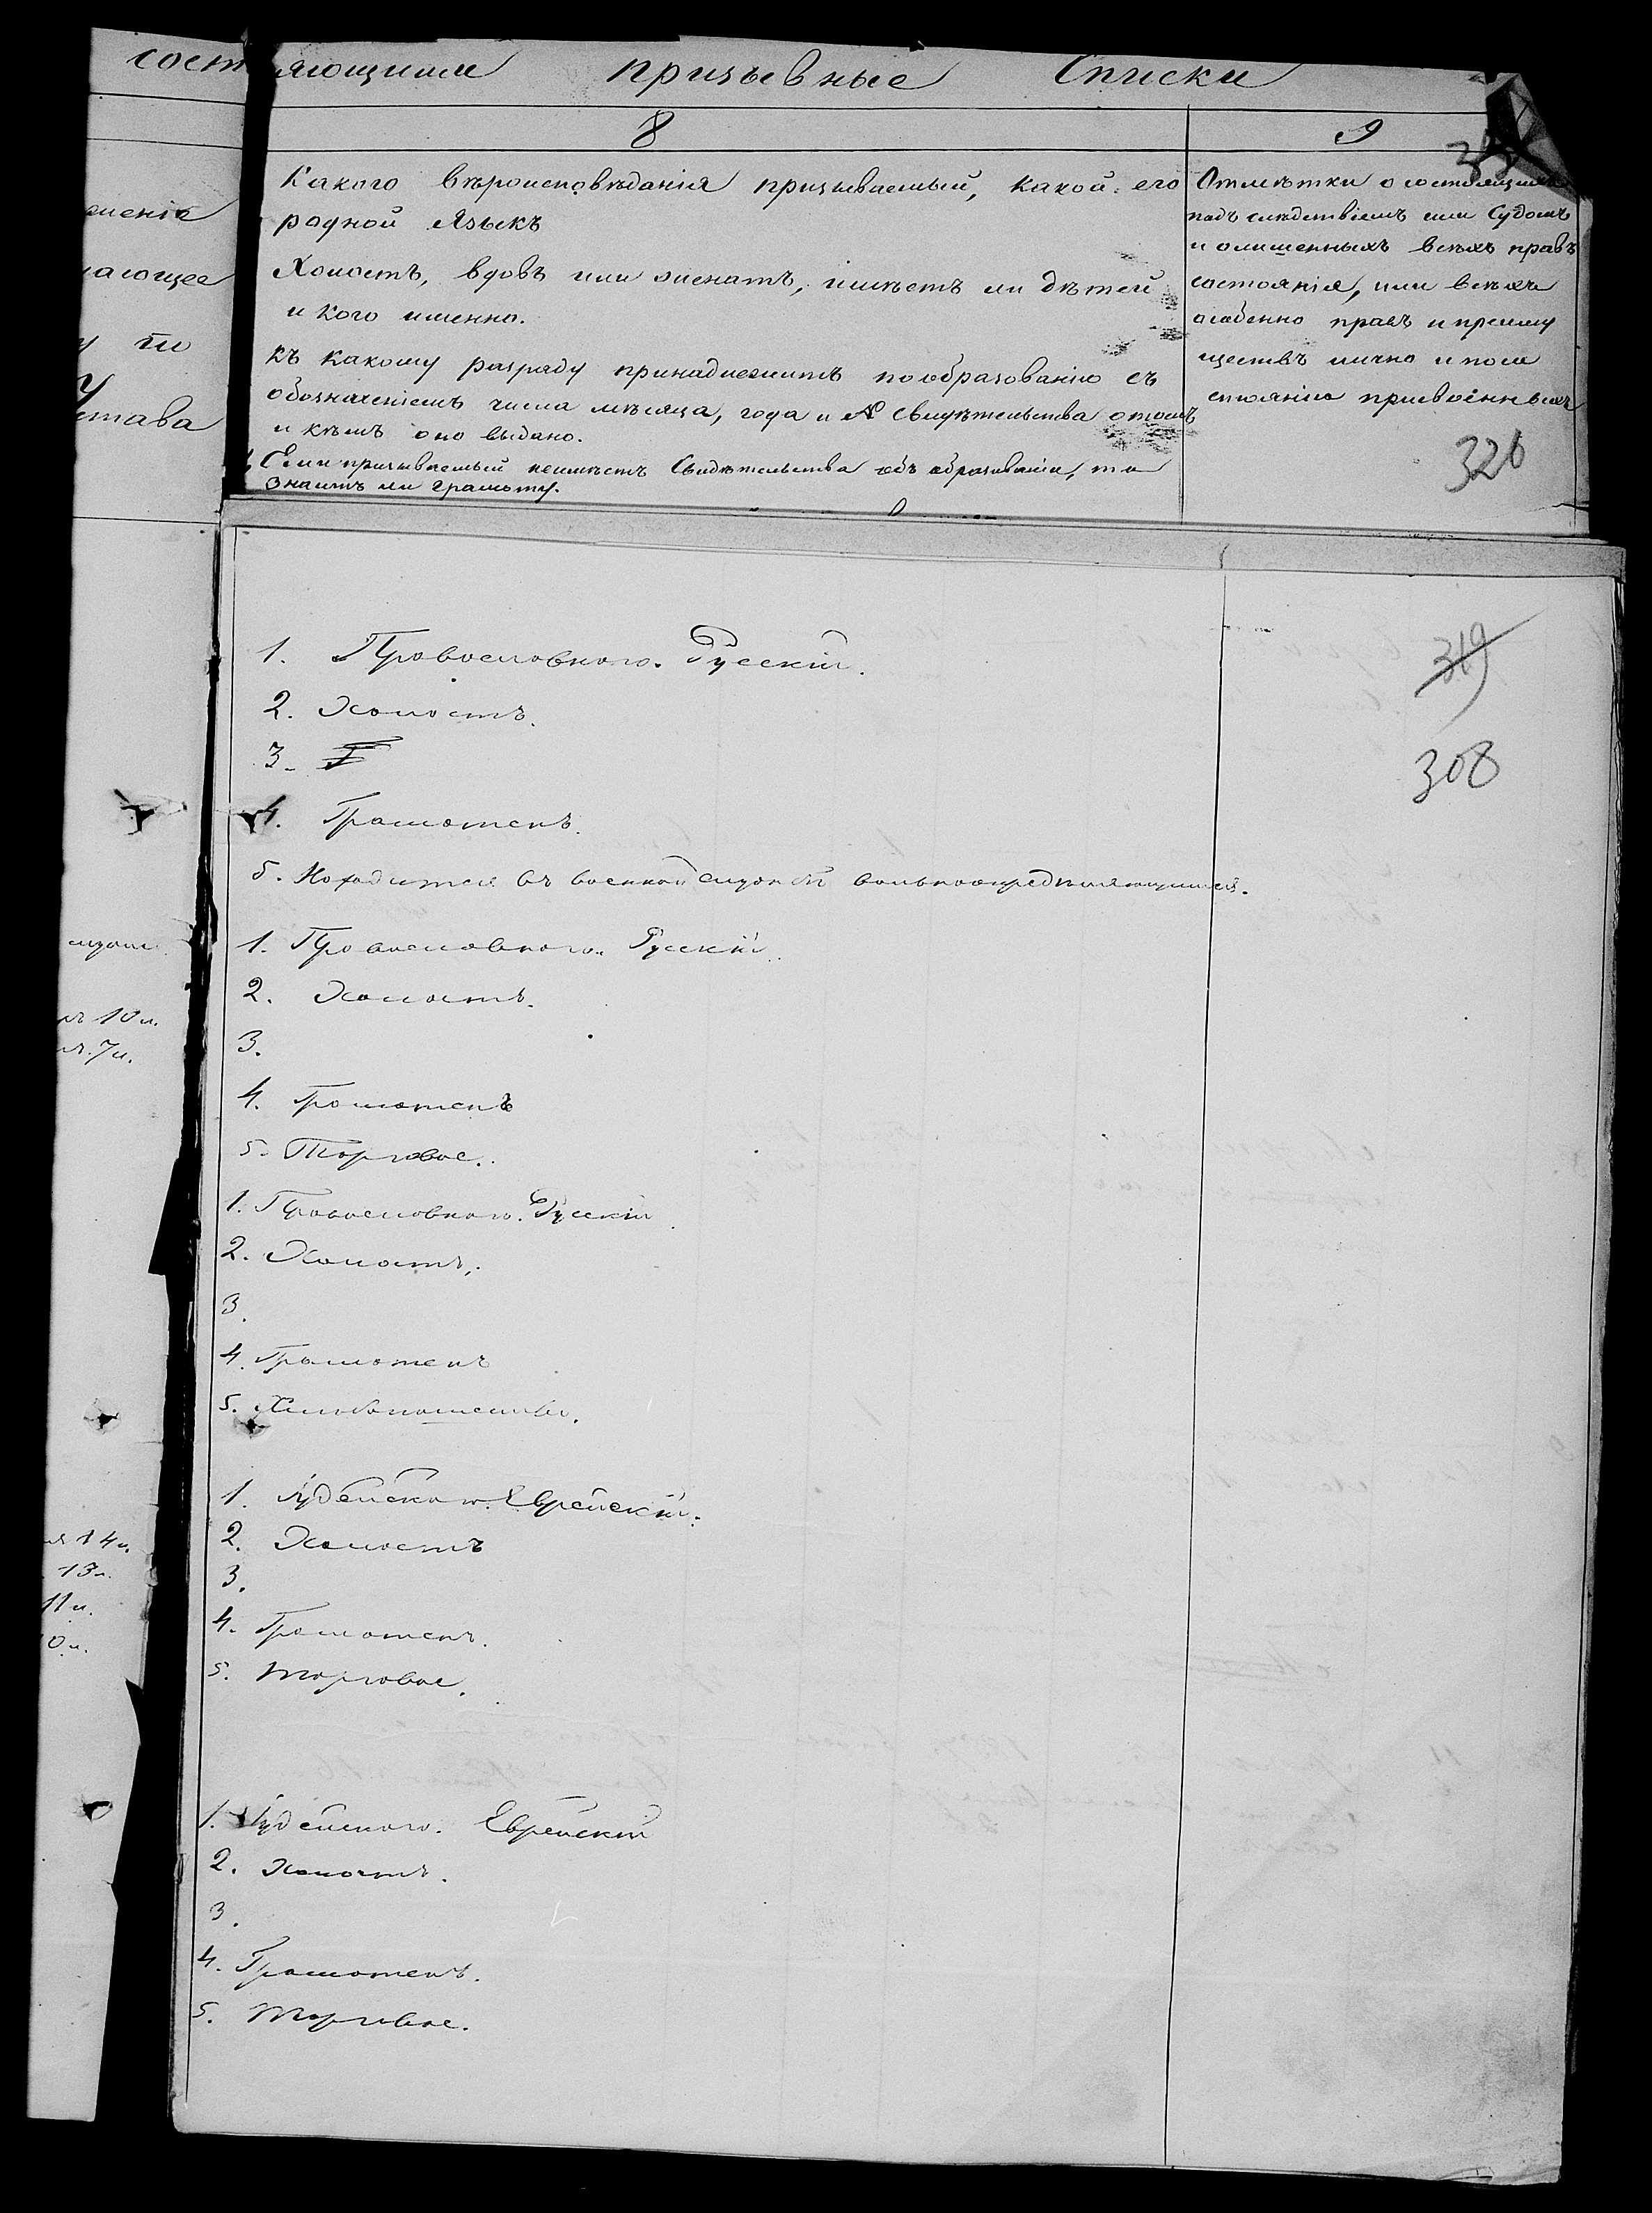 сост яющиим призывные Списки
8
9
Какого вѣроисповѣданія призываемый, какой его
родной Языкъ
Холостъ, вдовъ или женатъ, имѣетъ ли дѣтей
и кого именно.
къ какому разряду принадлежитъ по образованію съ
обозначеніемъ числа мѣсяца, года и № свидѣтельства отомъ
и кѣмъ оно выдано.
Если призываемый неимѣетъ Свидѣтельства объ образованіи, то
знаитъ ли грамоту.
Отмѣтки о состоящихъ
подъ слѣдствіемъ или Судомъ
и олишенныхъ всѣхъ правъ
состоянія, или всѣхъ
особенно правъ и преиму
ществъ лично и по со
стоянію присвоенныхъ
326
мента
ающее
у по
става
319
308
1. Православного. Русскій.
2. Холостъ.
3.
4. Грамотенъ.
5. Находится въ военной службѣ вольноопредѣляющимся.
1. Православного. Русскій
2. Холостъ.
3.
4. Грамотенъ
5. Торговое.
1. Православного. Русскій
2. Холостъ.
3.
4. Грамотенъ
5. Хлебопашество.
1. Іудейского. Еврейскій.
2. Холостъ
3.
4. Грамотенъ.
5. Торговое.
1. Іудейского. Еврейскій
2. Холостъ.
3.
4. Грамотенъ.
5. Торговое.
10 л.
7 л.
14 л.
13 л.
11 л.
0 л.